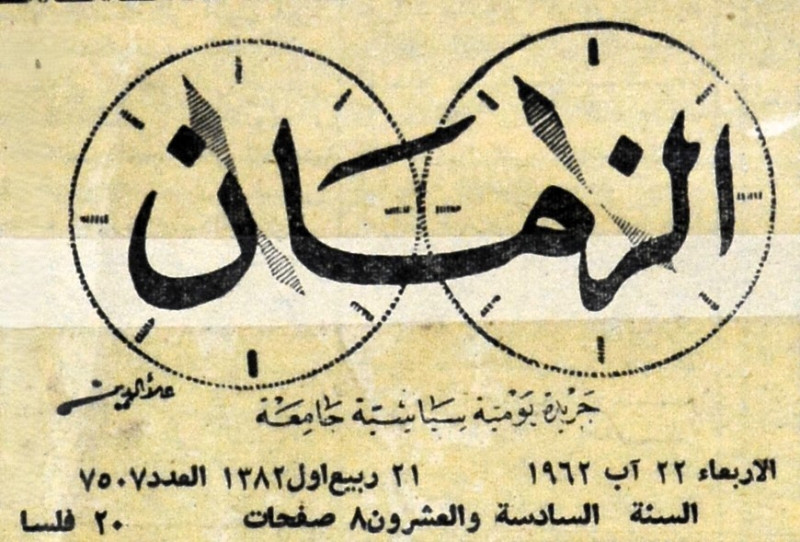 الزمان
علاءالدين
جريدة يومية سياسية جامعة
الاربعاء ٢٢ آب ١٩٦٢ ٢١ ربيع اول ١٣٨٢ العدد ٧٥٠٧
السنة السادسة والعشرون ٨ صفحات ٢٠ فلسا